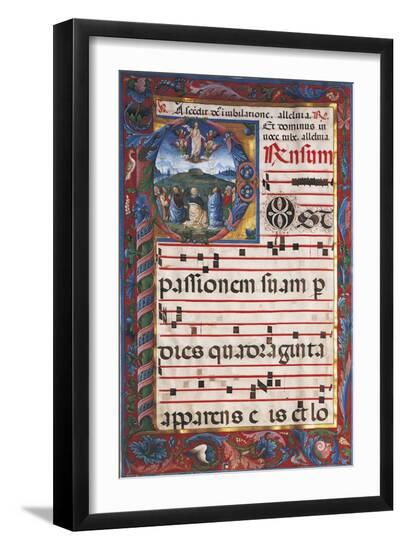 R. Ascēdit dē iubilatione. alleluia. R.
Et dominus in
uoce tube. alleluia.
Rnsum
OST
passionem suam p
dies quadraginta
apparens e is et lo